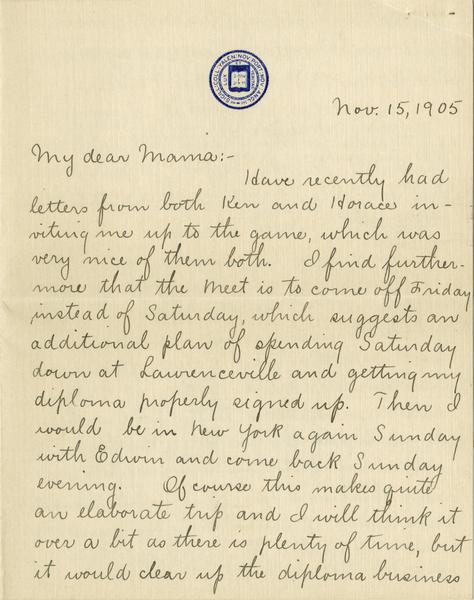 SIGILL. COLL. YALEN. NOV. PORT. NOV. ANGL.
Nov. 15, 1905
My dear Mama:-
Have recently had
letters from both Ken and Horace in-
viting me up to the game, which was
very nice of them both. I find further-
more that the meet is to come off Friday
instead of Saturday, which suggests an
additional plan of spending Saturday
down at Lawrenceville and getting my
diploma properly signed up. Then I
would be in New York again Sunday
with Edwin and come back Sunday
evening. Of course this makes quite
an elaborate trip and I will think it
over a bit as there is plenty of time, but
it would clear up the diploma business